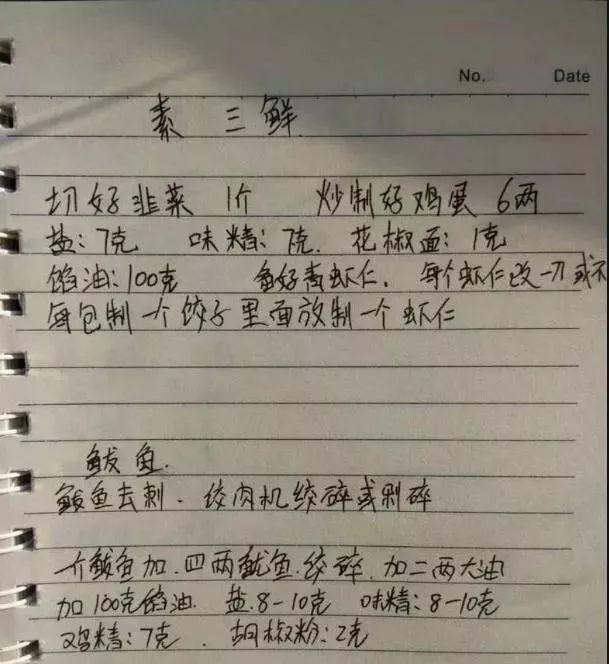 No. Date
素三鲜
切好韭菜 1斤 炒制好鸡蛋 6两
盐:7克 味精:7克. 花椒面:1克
馅油:100克 好青虾仁. 每个虾仁改一刀或不
每包制一个饺子里面放制一个虾仁
鲅鱼.
鲅鱼去刺.绞肉机绞碎或剁碎
一斤鲅鱼加.四两鱿鱼.绞碎.加二两大油
加100克馅油 盐.8-10克 味精:8-10克
鸡精:7克. 胡椒粉:2克